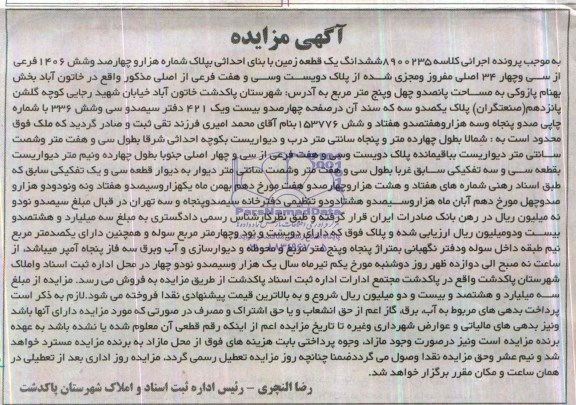 آگهی مزایده
به موجب پرونده اجرائی کلاسه ۸۹۰۰۲۳۵ ششدانگ یک قطعه زمین با بنای احداثی بپلاک شماره هزارو چهارصد وشش ۱۴۰۶ فرعی
از سی وچهار ۳۴ اصلی مفروز ومجزی شده از پلاک دویست وسی و هفت فرعی از اصلی مذکور واقع در خاتون آباد بخش
بهنام پازوکی به مساحت پانصدو چهل وپنج متر مربع به آدرس: شهرستان پاکدشت خاتون آباد خیابان شهید رجایی کوچه گلشن
پانزدهم(صنعتگران) پلاک یکصدو سه که سند آن درصفحه چهارصدو بیست ویک ۴۲۱ دفتر سیصدو سی وشش ۳۳۶ با شماره
چاپی صدو پنجاه وسه هزاروهفتصدو هفتاد و شش ۱۵۳۷۷۶ بنام آقای محمد امیری فرزند تقی ثبت و صادر گردید که ملک فوق
محدود است به : شمالا بطول چهارده متر و پنجاه سانتی متر درب و دیواریست بکوچه احداثی شرقا بطول سی و هفت متر وشصت
سانتی متر دیواریست بباقیمانده پلاک دویست وسی و هفت فرعی از سی و چهار اصلی جنوبا بطول چهارده ونیم متر دیواریست
بقطعه سی و سه تفکیکی سابق غربا بطول سی و هفت متر وشصت سانتی متر دیوار به دیوار قطعه سی و یک تفکیکی سابق که
طبق اسناد رهنی شماره های هفتاد و هشت هزاروچهارصدو هفت مورخ دهم بهمن ماه یکهزاروسیصدو هفتاد ونه ونودودو هزارو
صدوچهل مورخ دهم آبان ماه هزاروسیصدو هشتادودو تنظیمی دفترخانه سیصدوپنجاه و سه تهران در قبال مبلغ سیصدو نودو
نه میلیون ریال در رهن بانک صادرات ایران قرار گرفته و طبق نظر کارشناس رسمی دادگستری به مبلغ سه میلیارد و هشتصدو
بیست ودومیلیون ریال ارزیابی شده و پلاک فوق که دارای دویست و نود وچهارمتر مربع سوله و همچنین دارای یکصدمتر مربع
نیم طبقه داخل سوله ودفتر نگهبانی بمتراژ پنجاه وپنج متر مربع و محوطه و دیوارسازی و آب وبرق سه فاز پنجاه آمپر میباشد، از
ساعت نه صبح الی دوازده ظهر روز دوشنبه مورخ یکم تیرماه سال یک هزار وسیصدو نودو چهار در محل اداره ثبت اسناد واملاک
شهرستان پاکدشت واقع در پاکدشت مجتمع ادارات اداره ثبت اسناد پاکدشت از طریق مزایده به فروش می رسد. مزایده از مبلغ
سه میلیارد و هشتصد و بیست و دو میلیون ریال شروع و به بالاترین قیمت پیشنهادی نقدا فروخته می شود.لازم به ذکر است
پرداخت بدهی های مربوط به آب، برق، گاز اعم از حق انشعاب و یا حق اشتراک و مصرف در صورتی که مورد مزایده دارای آنها باشد
ونیز بدهی های مالیاتی و عوارض شهرداری وغیره تا تاریخ مزایده اعم از اینکه رقم قطعی آن معلوم شده یا نشده باشد به عهده
برنده مزایده است ونیز درصورت وجود مازاد، وجوه پرداختی بابت هزینه های فوق از محل مازاد به برنده مزایده مسترد خواهد
شد و نیم عشر وحق مزایده نقدا وصول می گرددضمنا چنانچه روز مزایده تعطیل رسمی گردد، مزایده روز اداری بعد از تعطیلی در
همان ساعت و مکان مقرر برگزار خواهد شد.
رضا النچری – رئیس اداره ثبت اسناد و املاک شهرستان پاکدشت
ParsNamadData